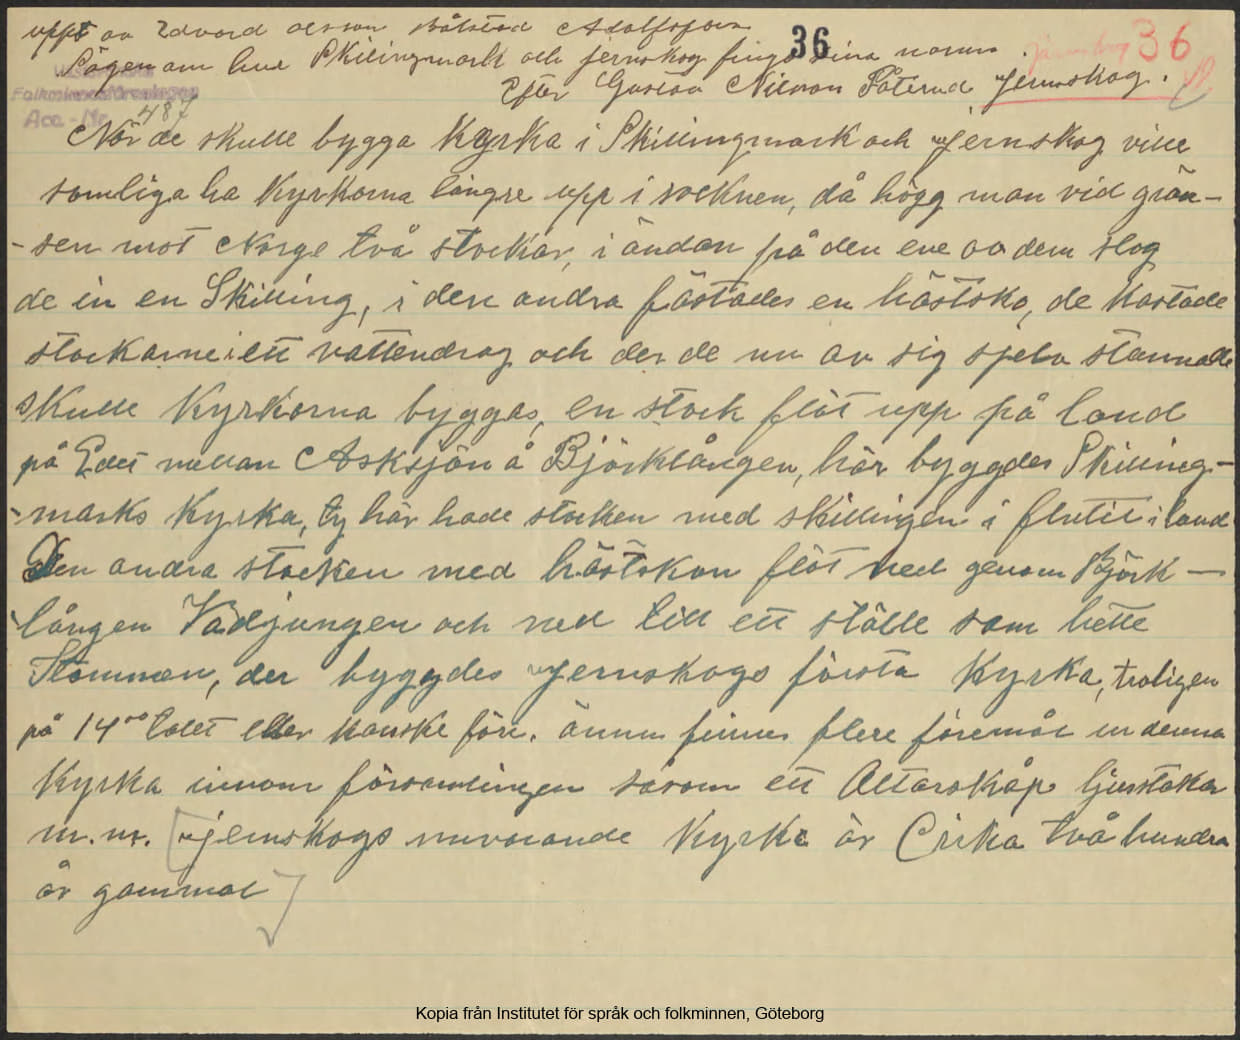 uppt av Edvard Olsson Båtstad Adolfsfors
36
Sägen om hur Skillingmark och Jernskog fingo sina namn.
Järnskog 36
Efter Gustav Nilsson Fåterud Jernskog.
Västsvenska
Folkminnesföreningen
Acc - Nr. 487
När de skulle bygga Kyrka i Skillingmark och Jernskog ville
somliga ha Kyrkorna längre upp i socknen, då högg man vid grän-
-sen mot Norge två stockar, i ändan på den ene av dem slog
de in en Skilling, i den andra fästades en hästsko, de kastade
stockarne i ett vattendrag och der de nu av sig sjelv stannade
skulle Kyrkorna byggas, en stock flöt upp på land
på Edet mellan Asksjön å Björklången, här byggdes Skilling-
-marks Kyrka, ty här hade stocken med skillingen i flutit i land
Den andra stocken med hästskon flöt ned genom Björk-
-lången Vadjungen och ned till ett ställe som hette
Stommen, der byggdes Jernskogs första Kyrka, troligen
på 1400 talet eller kanske före. ännu finnes flere föremål ur denna
Kyrka innom församlingen såsom ett Altarskåp ljusstakar
m.m. [Jernskogs nuvarande Kyrka är Cirka två hundra
år gammal]
Kopia från Institutet för språk och folkminnen, Göteborg